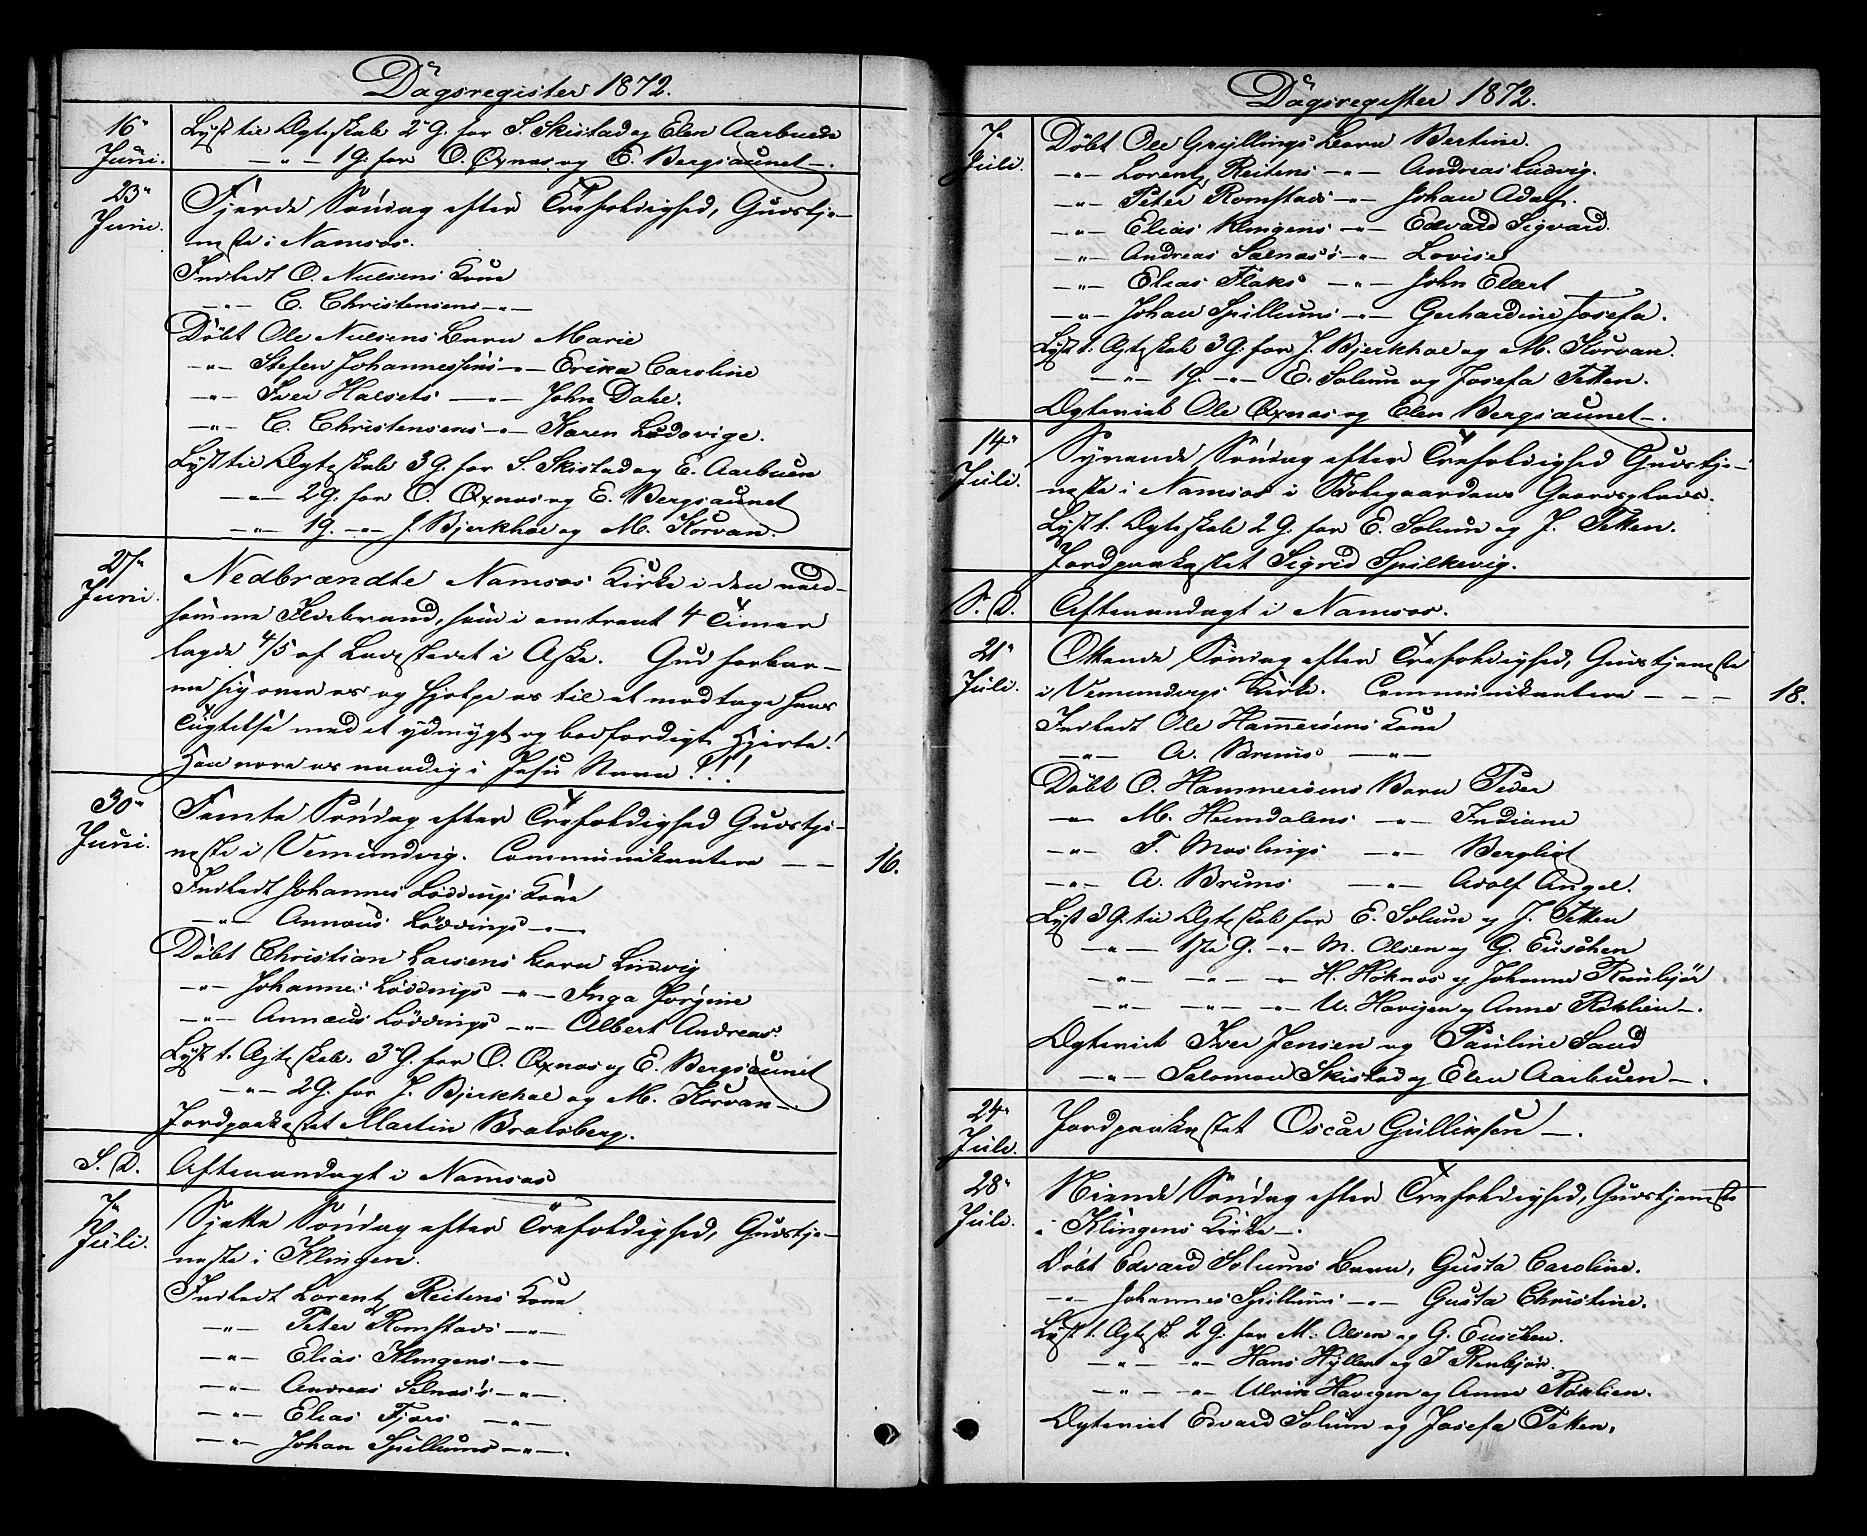 Dagsregister 1872.
16de Juni. Lyst til Ægteskab 2 G. for S. Skistad og Elen Aarbuen
—"— 1 G. for O. Oxnas og E. Bergsaunet —.
23de Juni. Fjerde Søndag efter Trefoldighed, Gudstje-
neste i Namsos.
Indledt O. Nielsens Kone
—"— C. Christensens —"—
Døbt Ole Nielsens Barn Marie
—"— Stefen Johannessens —"— Erika Caroline
—"— Iver Halsets —"— John Dahl.
—"— C. Christensens —"— Karen Ludovige.
Lyst til Ægteskab 3 G. for S. Skistad og E. Aarbuen
—"— 2 G. for O. Oxnas og E. Bergsaunet
—"— 1 G. —"— J. Bjerkhol og M. Korvan.
27de Juni. Nedbrændte Namsos Kirke i den vold-
somme Ildebrand, som i omtrent 4 Timer
lagde 4/5 af Ladestedet i Aske. Gud forbar-
me sig over os og hjelpe os til at modtage hans
Tugtelse med et ydmygt og bodfærdigt Hjerte!
Han være os naadig i Jesu Navn!!!
30de Juni. Femte Søndag efter Trefoldighed Gudstje-
neste i Vemundvig. Communikantere — — 16.
Indledt Johannes Løddings Kone
—"— Annæus Løddings —"—
Døbt Christian Larsens Barn Lindvig
—"— Johannes Løddings —"— Inga Jørgine
—"— Annæus Løddings —"— Albert Andreas.
Lyst t. Ægteskab. 3 G. for O. Oxnas og E. Bergsaunet
—"— 2 G. for J. Bjerkhol og M. Korvan —.
Jordpaakastet Martin Bratsberg.
S. D. Aftenandagt i Namsos
7de Juli. Sjette Søndag efter Trefoldighed, Gudstje-
neste i Klingen.
Indledt Lorentz Reitens Kone
—"— Peter Romstads —"—
—"— Elias Klingens —"—
—"— Andreas Selnas's —"—.
—"— Elias —"—
—"— Johan Spillums —"—.
Dagsregister 1872.
7de Juli. Døbt Ole Gryllings Barn Bertine.
—"— Lorentz Reitens —"— Andreas Ludvig.
—"— Peter Romstads —"— Johan Adolf.
—"— Elias Klingens —"— Edvard Sigvard.
—"— Andreas Salnas's —"— Lovise
—"— Elias Flaks —"— John Edert
—"— Johan Spillums —"— Gerhardine Josefa.
Lyst t. Ægteskab 3 G. for J. Bjerkhol og M. Korvan.
—"— 1 G. —"— E. Solum og Josefa Tetten.
Ægteviet Ole Oxnas og Elen Bergsaunet —.
14de Juli. Syvende Søndag efter Trefoldighed Gudstje-
neste i Namsos i Gaardsplads.
Lyst t. Ægteskab 2 G. for E. Solum og J. Tetten.
Jordpaakastet Sigrid Spilkevig.
S. D. Aftenandagt i Namsos.
21de Juli. Ottende Søndag efter Trefoldighed, Gudstjeneste
i Vemundvigs Kirke. Communikantere — — — 18.
Indledt Ole Hammersens Kone
—"— A. Bruns —"—
Døbt O. Hammersens Barn Peder
—"— M. Heimdalens —"— Indiane
—"— F. Moslings —"— Bergliot
—"— A. Bruns —"— Adolf Angel.
Lyst 3 G. til Ægteskab for E. Solum og J. Tetten
—"— 1ste G. —"— M. Olsen og G. Euschen
—"— —"— —"— H. Høknes og Johanna Reinbjør
—"— —"— —"— U. Havigen og Anne Røklien —.
Ægteviet Iver Jensen og Pauline Sand
—"— Salomon Skistad og Elen Aarbuen —.
24de Juli. Jordpaakastet Oscar Gulliksen —.
28de Juli. Niende Søndag efter Trefoldighed, Gudstjeneste
i Klingens Kirke —.
Døbt Edvard Solums Barn, Gusta Caroline.
—"— Johannes Spillums —"— Gusta Christine.
Lyst t. Ægtesk. 2 G. for M. Olsen og G. Euschen.
—"— —"— Hans og J Renbjør.
—"— —"— Ulrik Havigen og Anne Røklien.
Ægteviet Edvard Solum og Josefa Tetten.